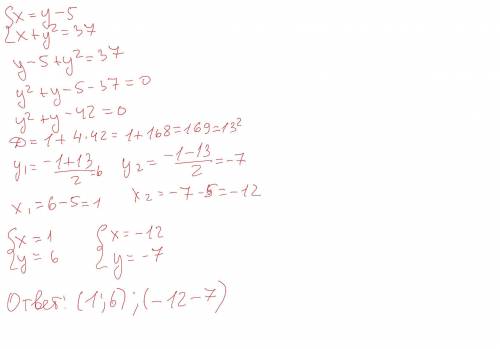 {x = y - 5
{x + y² = 37
y - 5 + y² = 37
y² + y - 5 - 37 = 0
y² + y - 42 = 0
D = 1 + 4·42 = 1 + 168 = 169 = 13²
y₁ = (-1+13)/2 = 6 y₂ = (-1-13)/2 = -7
x₁ = 6 - 5 = 1 x₂ = -7 - 5 = -12
{x = 1 {x = -12
{y = 6 {y = -7
Ответ: (1; 6) ; (-12 -7)